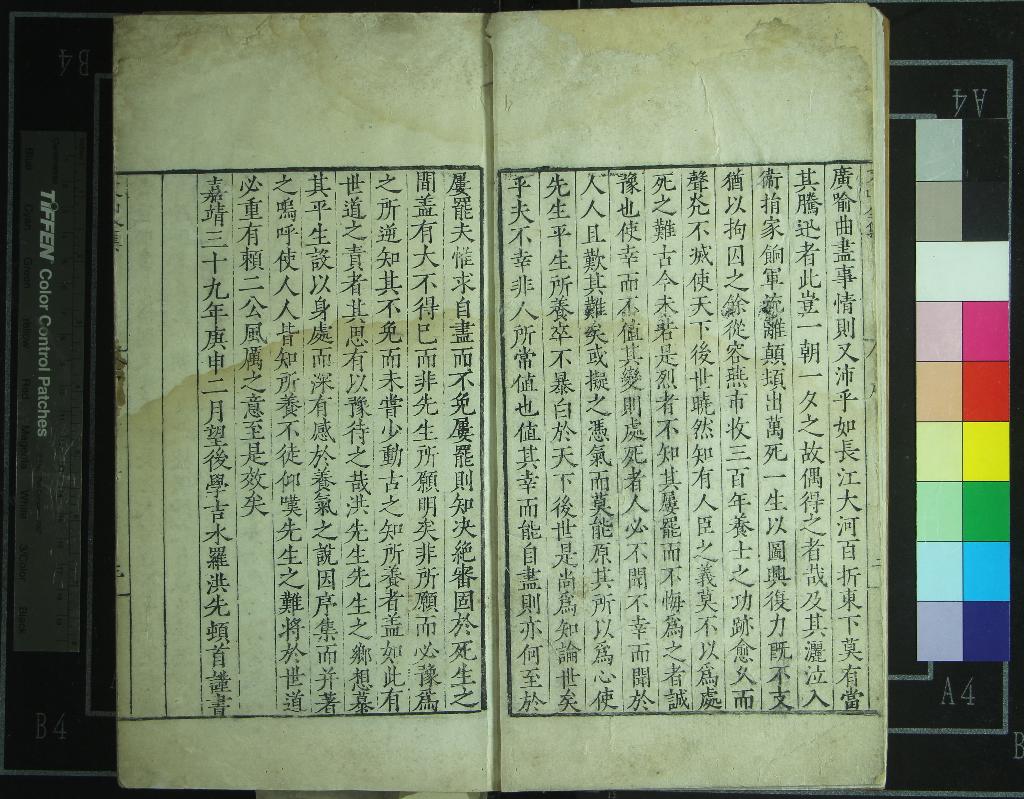 廣喻曲盡事情則又沛乎如長江大河百折東下莫有當
其騰迅者此豈一朝一夕之故偶得之者哉及其灑泣入
衛捐家餉軍流離顛頓出萬死一生以圖興復力既不支
猶以拘囚之餘從容燕市收三百年養士之功跡愈久而
聲光不滅使天下後世曉然知有人臣之義莫不以爲處
死之難古今未若是烈者不知其屢罷而不悔爲之者誠
豫也使幸而不值其變則處死者人必不聞不幸而聞於
人人且歎其難矣或擬之憑氣而莫能原其所以爲心使
先生平生所養卒不暴白於天下後世是尚爲知論世矣
乎夫不幸非人所常值也值其幸而能自盡則亦何至於
屢罷夫惟求自盡而不免屢罷則知決絕審固於死生之
間盖有大不得已而非先生所願明矣非所願而必豫爲
之所逆知其不免而未嘗少動古之知所養者盖如此有
世道之責者其思有以豫待之哉洪先生先生之鄉想慕
其平生設以身處而深有感於養氣之說因序集而并著
之嗚呼使人人皆知所養不徒仰嘆先生之難將於世道
必重有賴二公風厲之意至是效矣
嘉靖三十九年庚申二月望後學吉水羅洪先頓首謹書
TIFFEN Color Control Patches
B4
B4
A4
A4